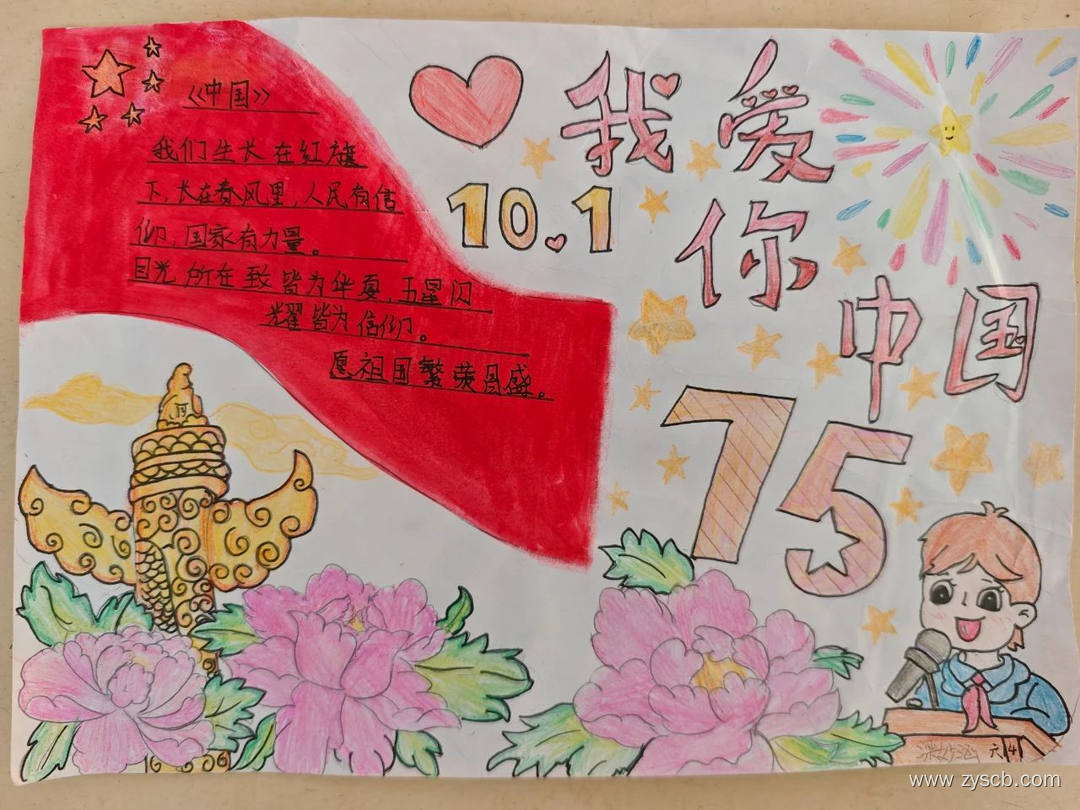 《中国》
我们生长在红旗
下,长在春风里,人民有信
仰,国家有力量。
目光所在致皆为华夏,五星闪
耀皆为信仰。
愿祖国繁荣昌盛。
我爱
你
中国
10.1
75
六4
www.zyscb.com